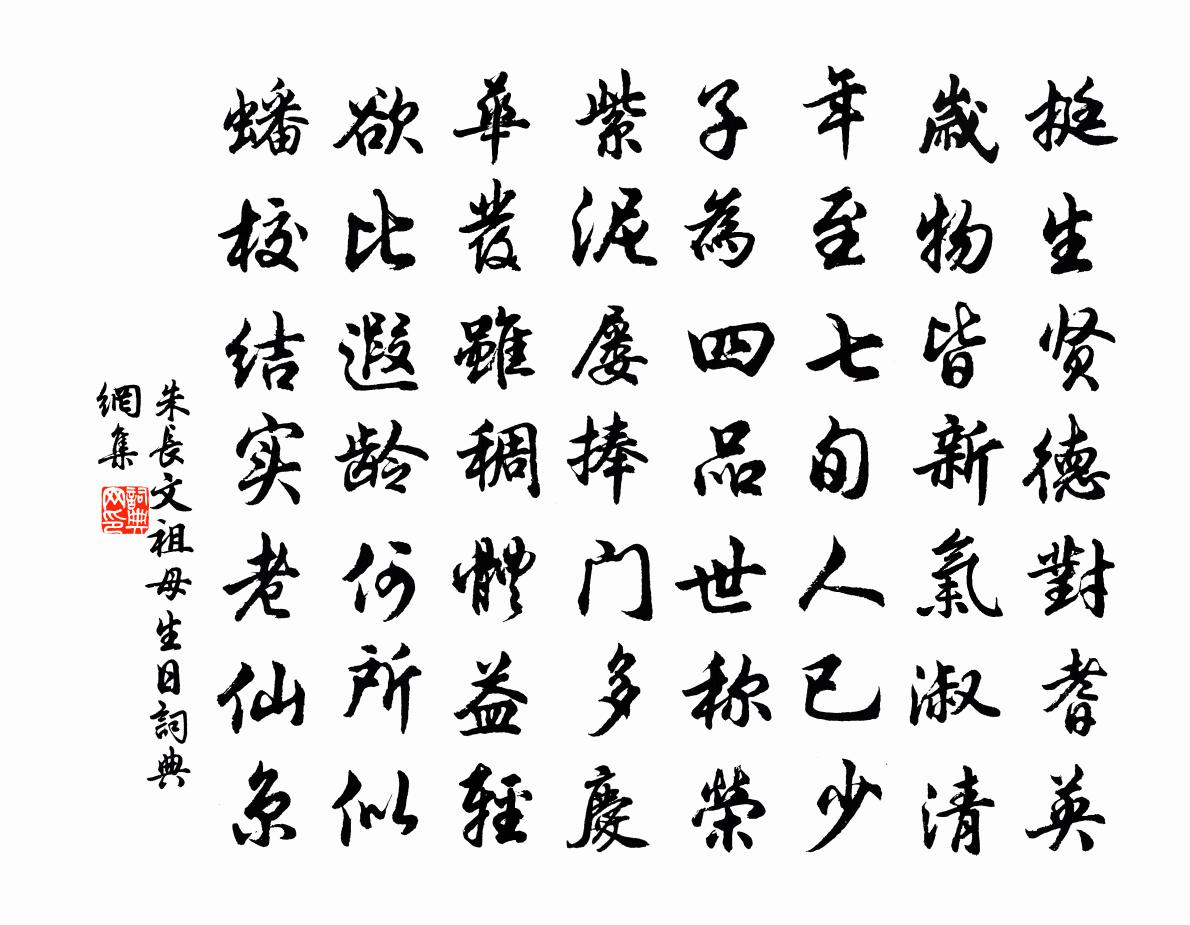 挺生贤德對耆英
歲物皆新氣淑清
年至七旬人已少
子為四品世称榮
紫泥屡捧门多慶
華髮雖稠體益輕
欲比遐龄何所似
蟠桜结实老仙京
朱長文祖母生日詞典
網集
詞典网印